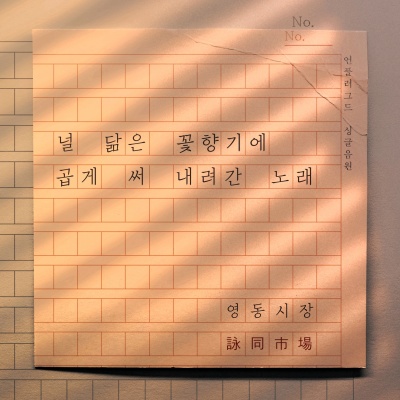 No.
No.
언플러그드 싱글음원
널 닮은 꽃향기에
곱게 써 내려간 노래
영동시장
詠同市場